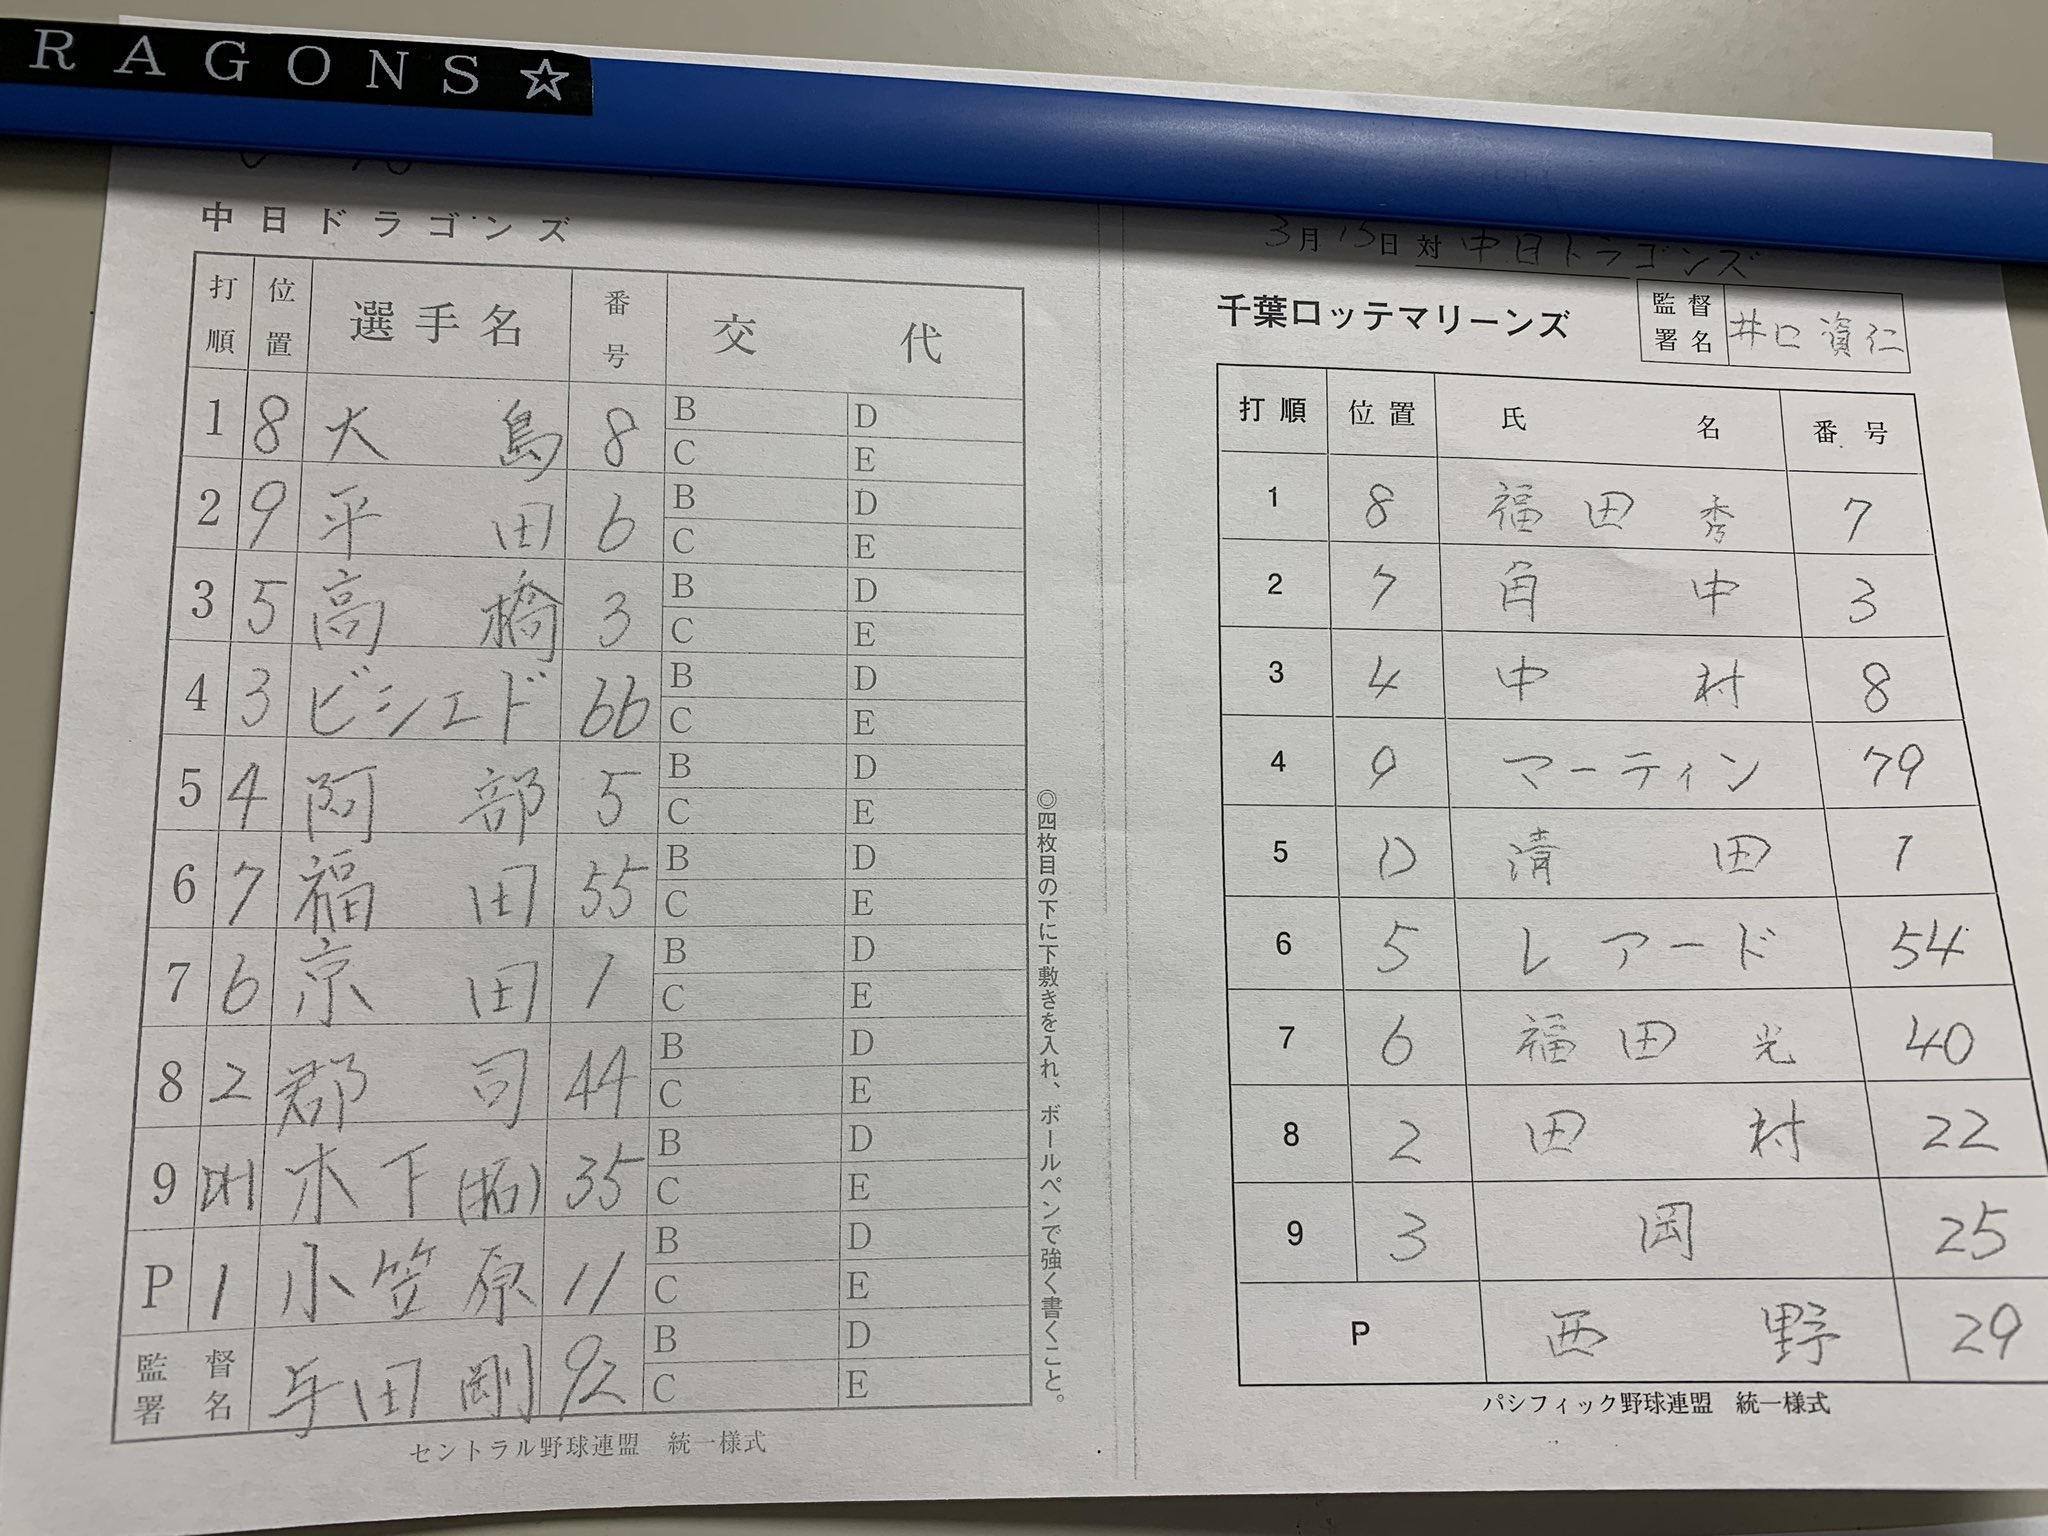 RAGONS☆
中日ドラゴンズ
打順 位置 選手名 番号 交代
1 8 大島 8 B D C E
2 9 平田 6 B D C E
3 5 高橋 3 B D C E
4 3 ビシエド 66 B D C E
5 4 阿部 5 B D C E
6 7 福田 55 B D C E
7 6 京田 1 B D C E
8 2 郡司 44 B D C E
9 DH 木下(拓) 35 B D C E
P 1 小笠原 11 B D C E
監督署名 与田剛 92 B D C E
セントラル野球連盟 統一様式
◎四枚目の下に下敷きを入れ、ボールペンで強く書くこと。
3月15日 対 中日ドラゴンズ
千葉ロッテマリーンズ 監督署名 井口資仁
打順 位置 氏名 番号
1 8 福田秀 7
2 7 角中 3
3 4 中村 8
4 9 マーティン 79
5 D 清田 1
6 5 レアード 54
7 6 福田光 40
8 2 田村 22
9 3 岡 25
P 西野 29
パシフィック野球連盟 統一様式